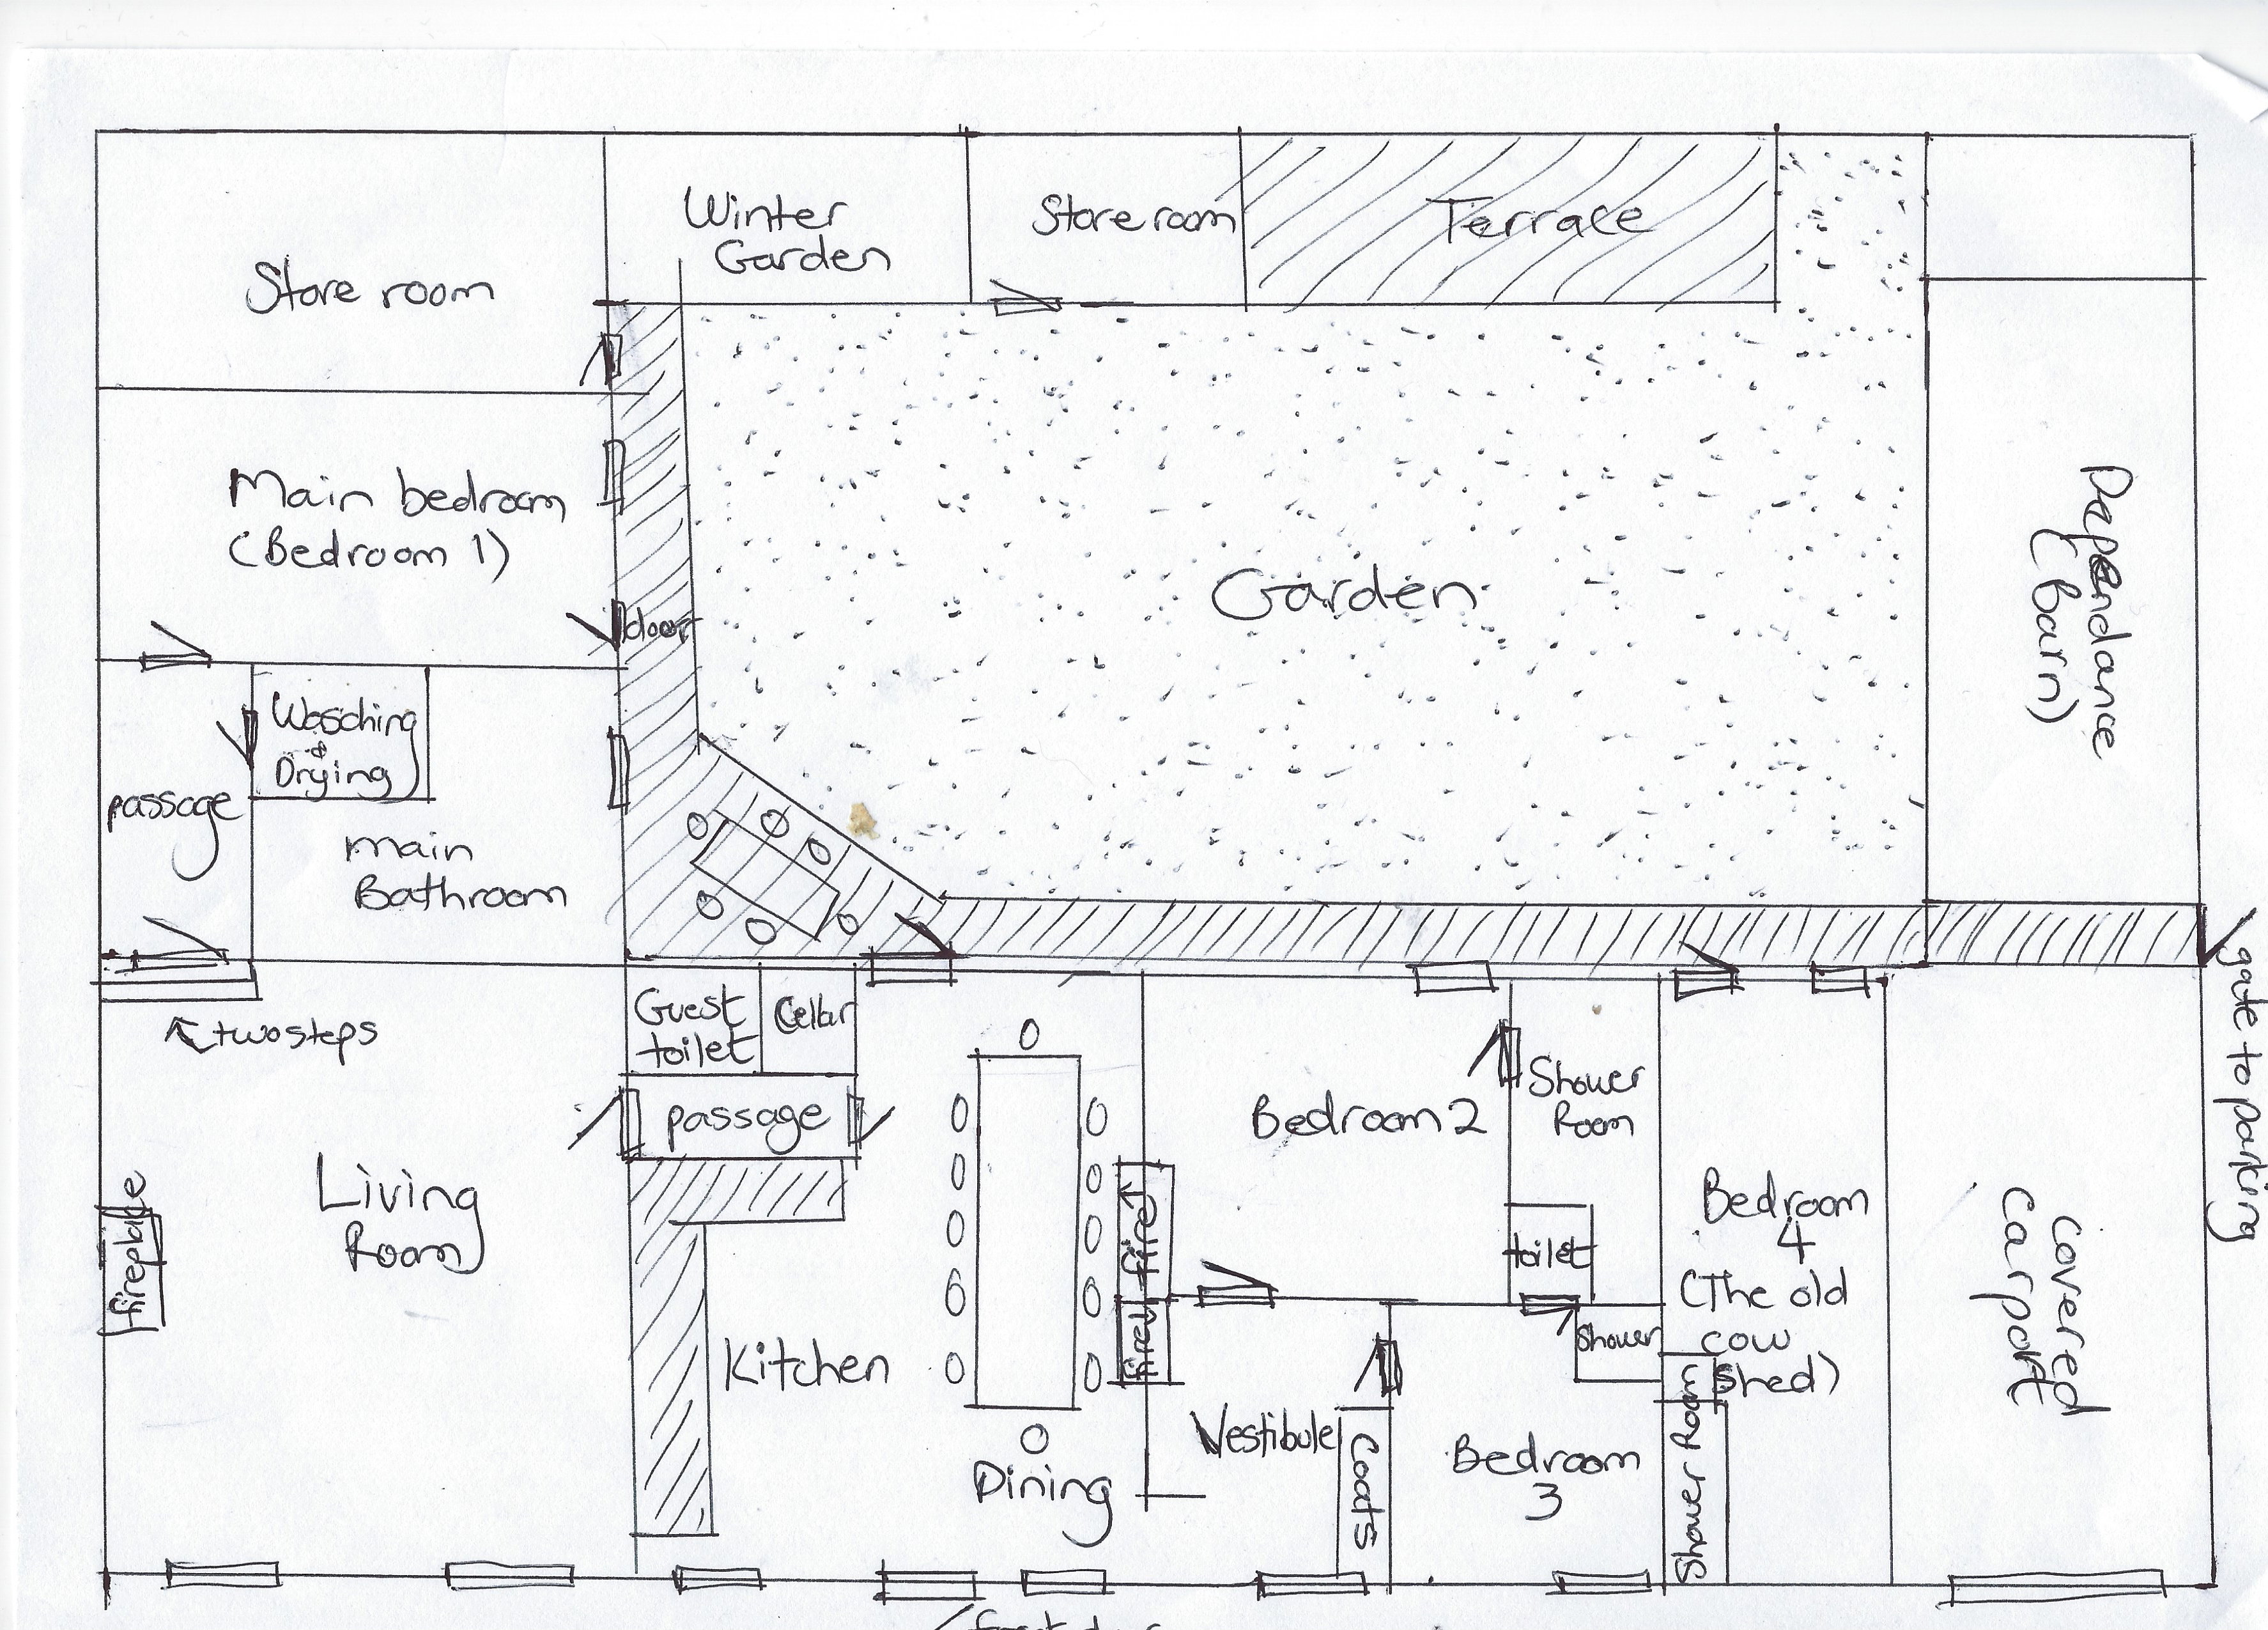 Winter
Garden
Store room
Terrace
Store room
Main bedroom
(Bedroom 1)
door
Garden
Dependance
(barn)
Wasching
&
Drying
passage
main
Bathroom
gate to parking
two steps
Guest
toilet
Cellar
passage
Living
Room
fireplace
Kitchen
Dining
fire
fire
Bedroom 2
Shower
Room
toilet
Shower
Vestibule
Coats
Bedroom
3
Shower Room
Bedroom
4
(The old
cow
shed)
covered
carport